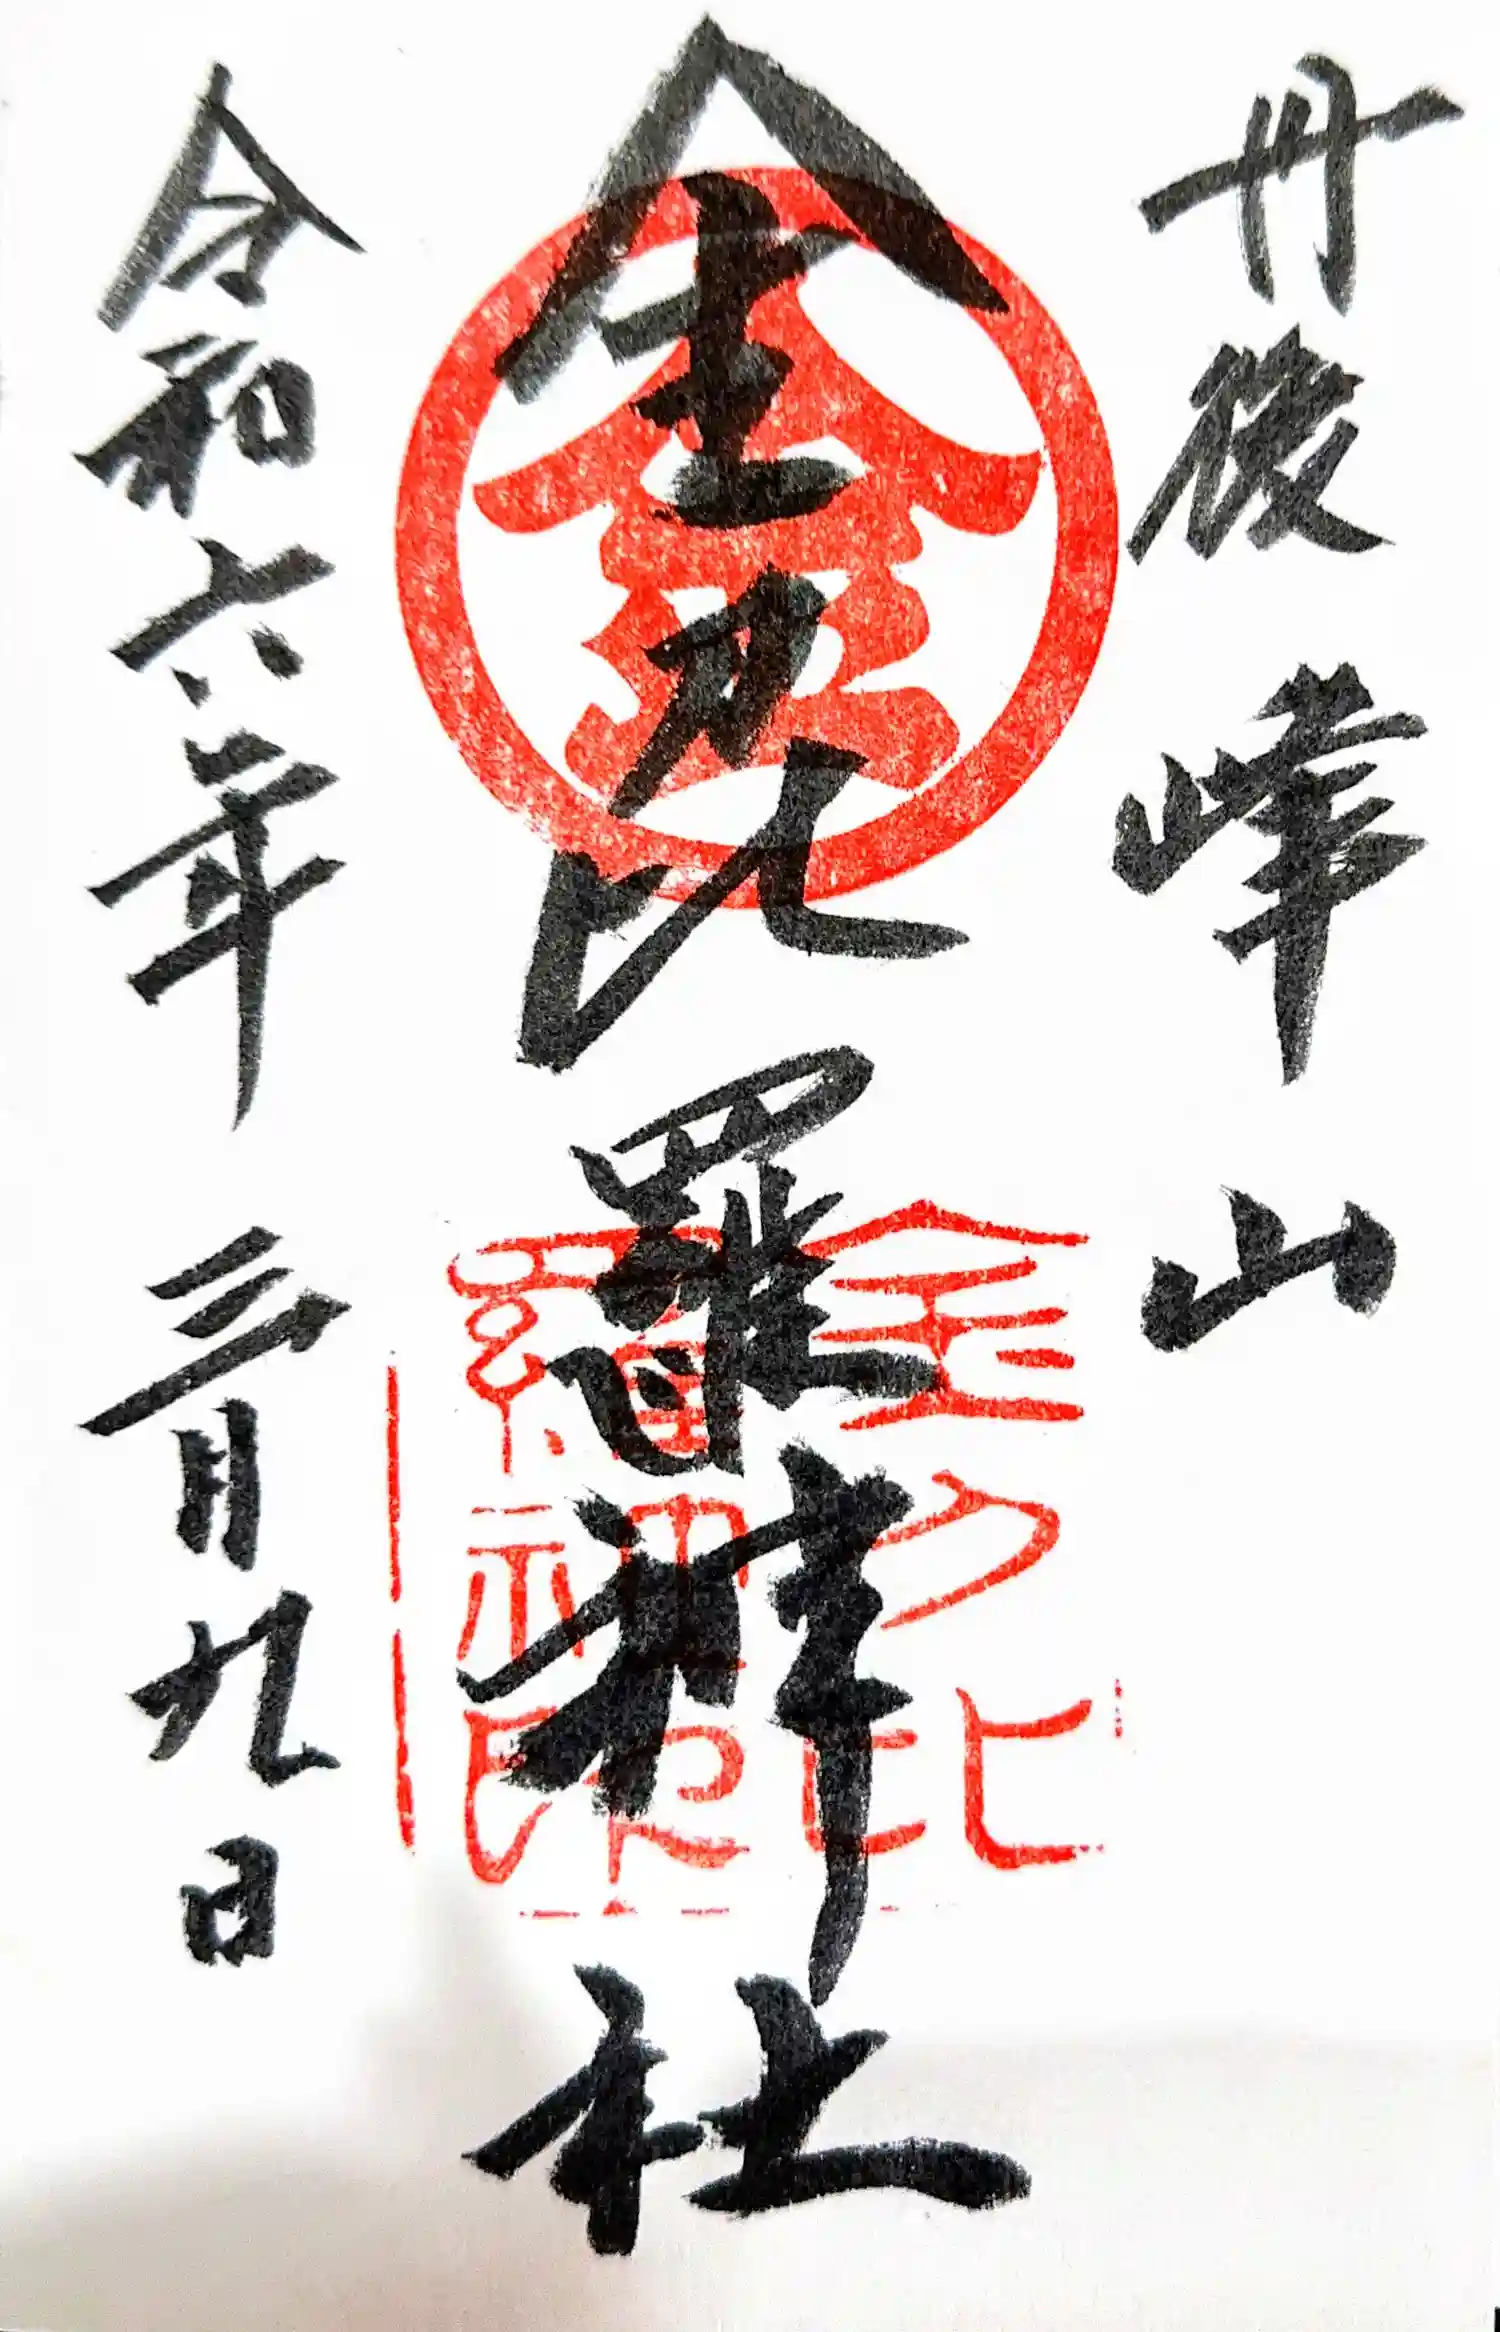 丹後 峰山
金刀比羅神社
令和六年 三月九日
金
金刀比
羅神印